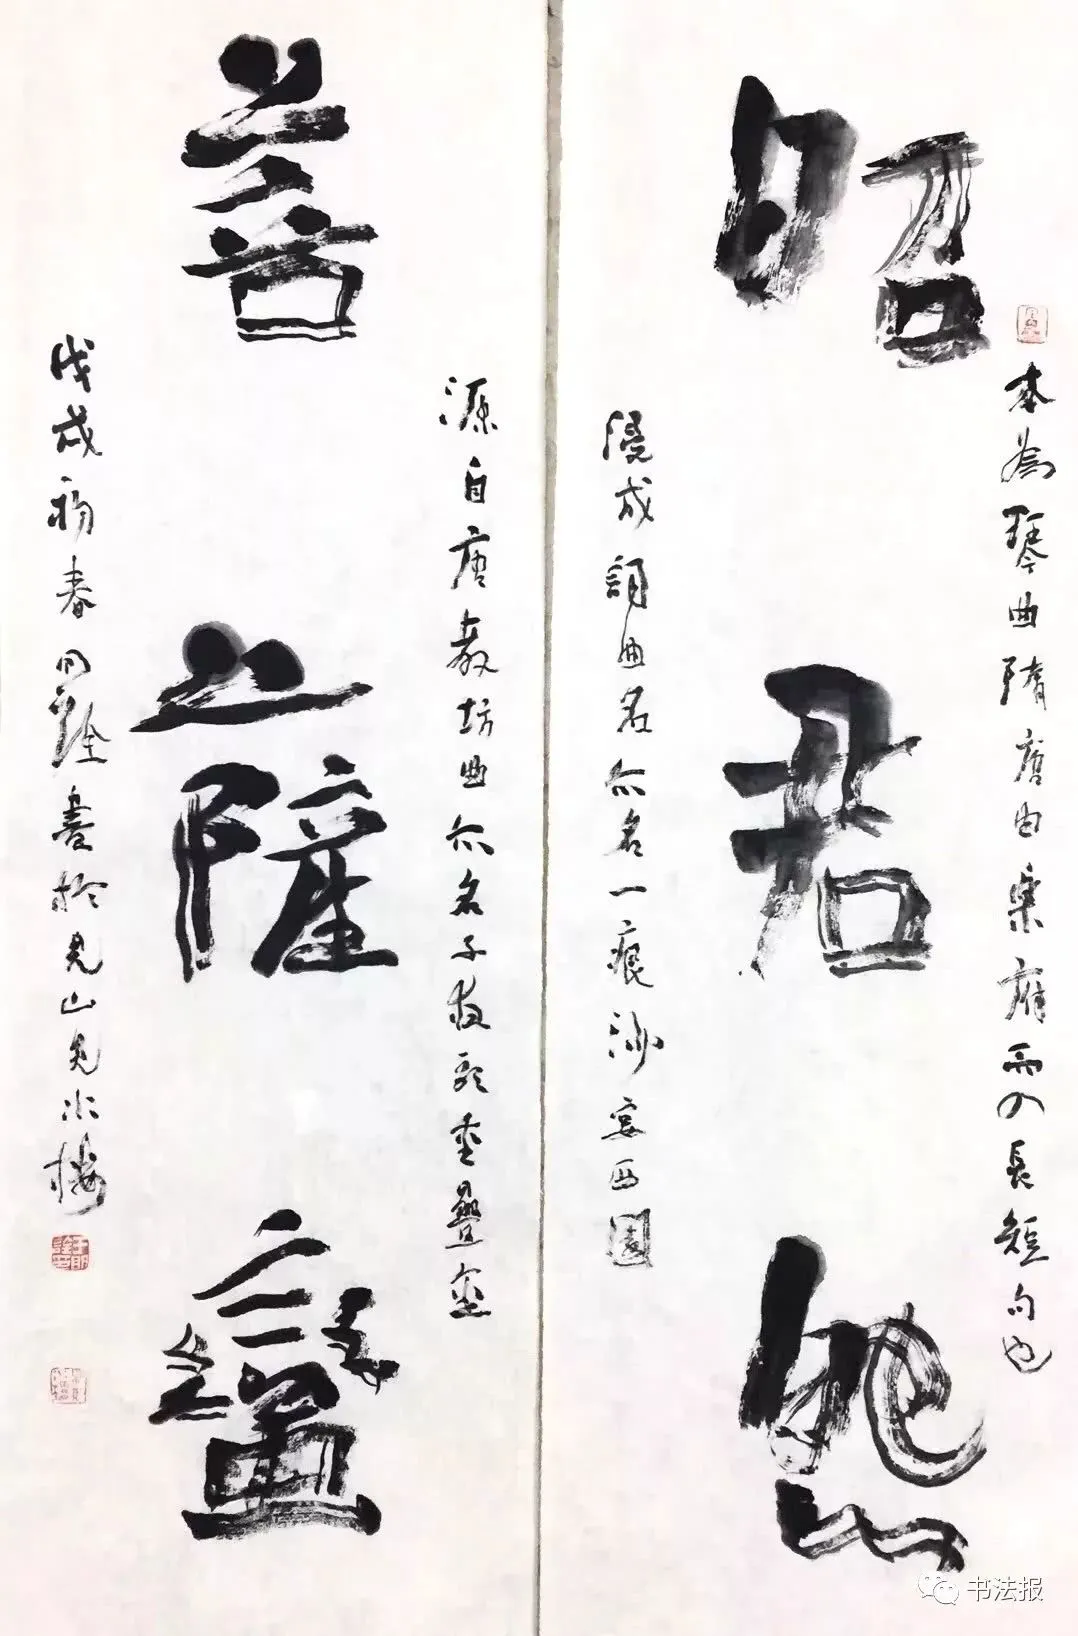 本為琴曲隋唐由樂府而入長短句也
昭君怨
成詞曲名亦名一痕沙宴西園
源自唐教坊曲亦名子夜歌重疊金
菩薩蠻
戊戌初春明詮書於見山見水樓
书法报